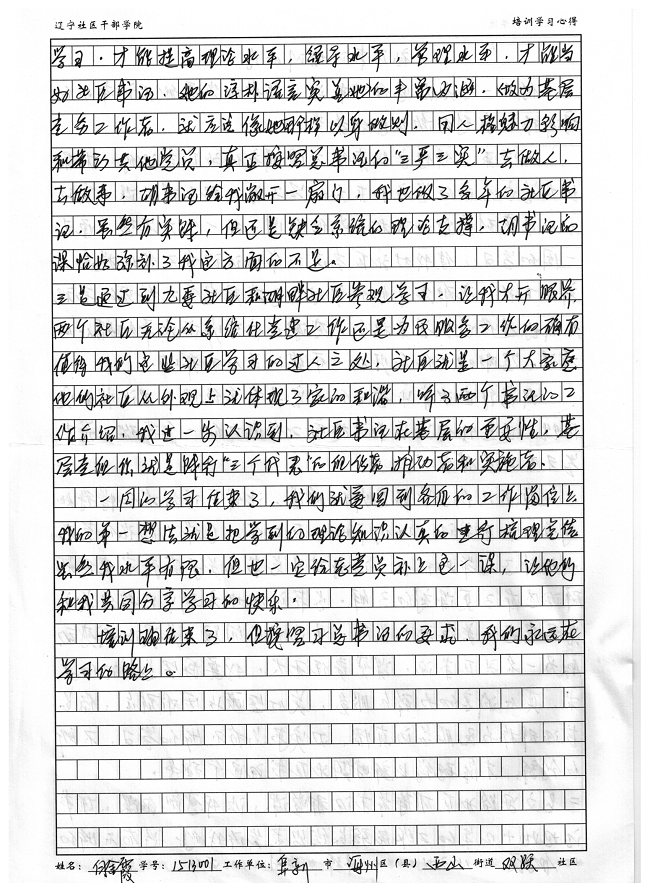 辽宁社区干部学院 培训学习心得
学习，才能提高理论水平，领导水平，管理水平，才能当
好社区书记，她的淳朴语言笑盖她的丰富内涵，做为基层
党务工作者，就应该像她那样以身做则，同人格魅力影响
和带动其他党员，真正按照总书记的"三严三实"去做人，
去做事，胡书记给我敞开一扇门，我也做了多年的社区书
记，虽然有实践，但还是缺乏系统的理论支撑，胡书记的
课恰好弥补了我这方面的不足。
三是通过到九 社区和湖畔社区参观学习，让我大开眼界，
两个社区无论从系统化党建工作还是为民服务工作的确有
值得我们这些社区学习的过人之处，社区就是一个大家庭
他们社区从外观上就体现了家的和谐，听了两个书记的工
作介绍，我进一步认识到，社区书记在基层的重要性，基
层党组织就是践行"三个代表"的组织者推动者和实施者。
一周的学习结束了，我们就要回到各自的工作岗位上
我的第一想法就是把学到的理论知识认真的进行梳理总结
虽然我水平有限，但也一定给老党员补上这一课，让他们
和我共同分享学习的快乐。
培训确结束了，但按照习总书记的要求，我们永远在
学习的路上。
姓名： 霞 学号：1513001 工作单位：阜新 市 海州 区（县） 西山 街道 双跃 社区